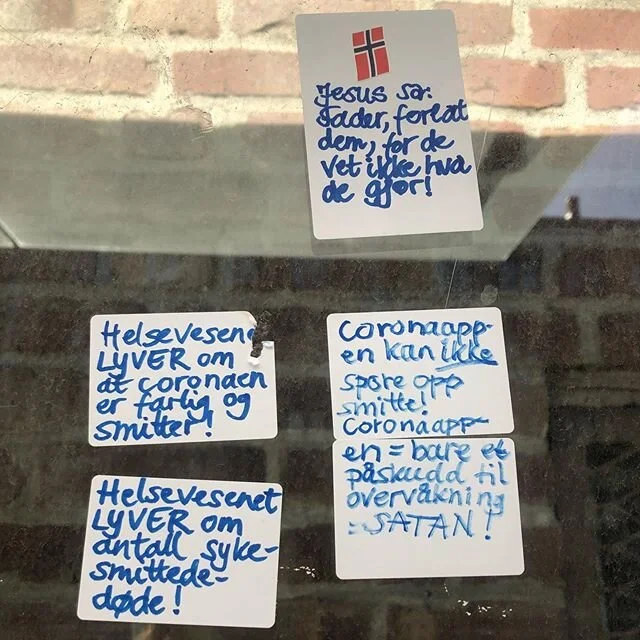 Jesus sa:
Fader, forlat
dem, for de
vet ikke hva
de gjør!
Helsevesenet
LYVER om
at coronaen
er farlig og
smitter!
Coronaapp-
en kan ikke
spore opp
smitte!
Coronaapp-
en = bare et
påskudd til
overvåkning
=SATAN!
Helsevesenet
LYVER om
antall syke-
smittede-
døde!